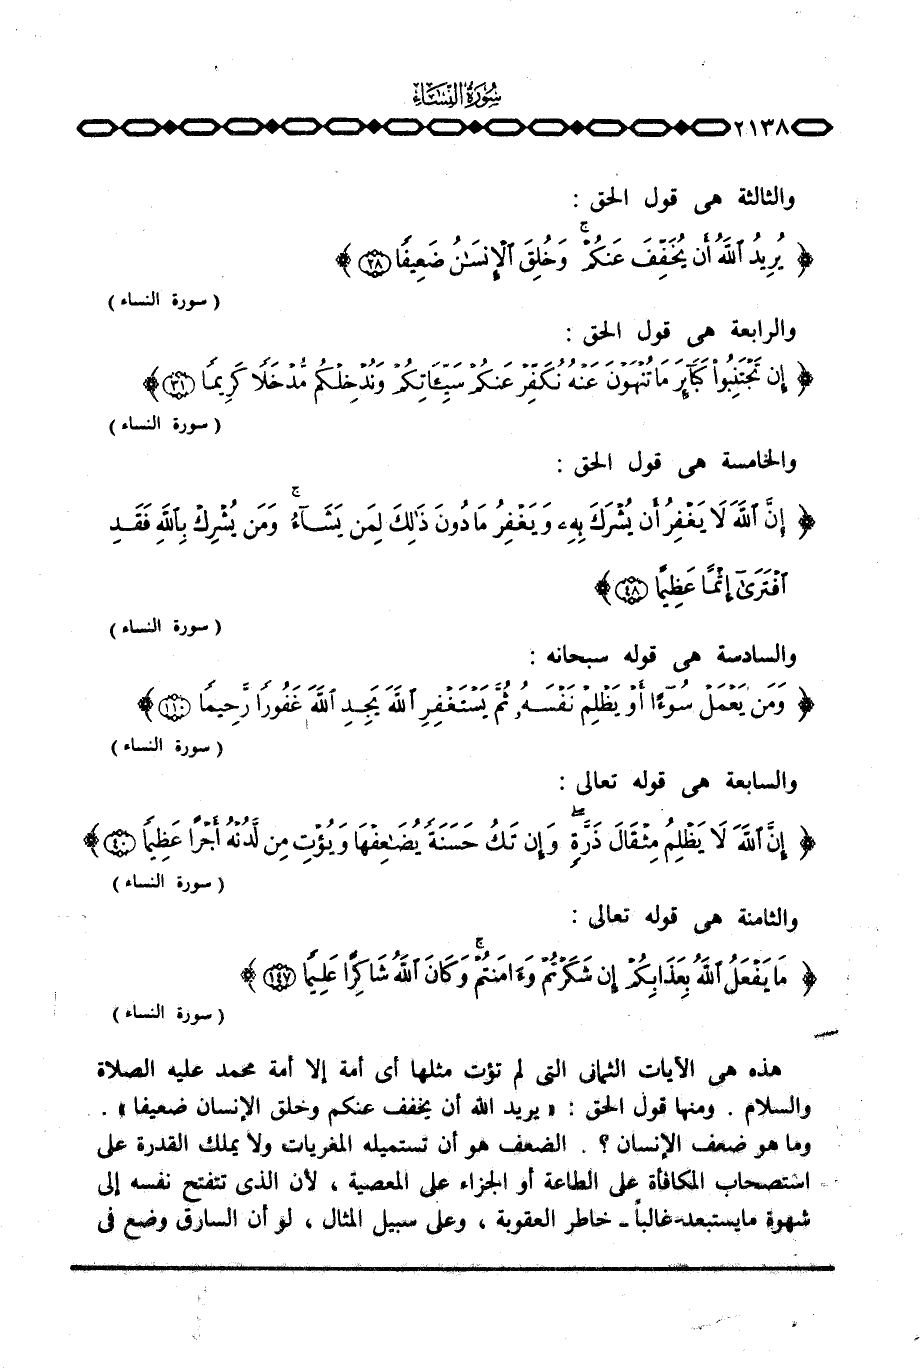 سُورَةُ النِّسَاءِ
٢١٣٨
والثالثة هى قول الحق :
﴿ يُرِيدُ ٱللَّهُ أَن يُخَفِّفَ عَنكُمْ ۚ وَخُلِقَ ٱلْإِنسَـٰنُ ضَعِيفًا ٢٨ ﴾
( سورة النساء )
والرابعة هى قول الحق :
﴿ إِن تَجْتَنِبُوا۟ كَبَآئِرَ مَا تُنْهَوْنَ عَنْهُ نُكَفِّرْ عَنكُمْ سَيِّـَٔاتِكُمْ وَنُدْخِلْكُم مُّدْخَلًا كَرِيمًا ٣١ ﴾
( سورة النساء )
والخامسة هى قول الحق :
﴿ إِنَّ ٱللَّهَ لَا يَغْفِرُ أَن يُشْرَكَ بِهِۦ وَيَغْفِرُ مَا دُونَ ذَٰلِكَ لِمَن يَشَآءُ ۚ وَمَن يُشْرِكْ بِٱللَّهِ فَقَدِ
ٱفْتَرَىٰٓ إِثْمًا عَظِيمًا ٤٨ ﴾
( سورة النساء )
والسادسة هى قوله سبحانه :
﴿ وَمَن يَعْمَلْ سُوٓءًا أَوْ يَظْلِمْ نَفْسَهُۥ ثُمَّ يَسْتَغْفِرِ ٱللَّهَ يَجِدِ ٱللَّهَ غَفُورًا رَّحِيمًا ١١٠ ﴾
( سورة النساء )
والسابعة هى قوله تعالى :
﴿ إِنَّ ٱللَّهَ لَا يَظْلِمُ مِثْقَالَ ذَرَّةٍ ۖ وَإِن تَكُ حَسَنَةً يُضَـٰعِفْهَا وَيُؤْتِ مِن لَّدُنْهُ أَجْرًا عَظِيمًا ٤٠ ﴾
( سورة النساء )
والثامنة هى قوله تعالى :
﴿ مَا يَفْعَلُ ٱللَّهُ بِعَذَابِكُمْ إِن شَكَرْتُمْ وَءَامَنتُمْ ۚ وَكَانَ ٱللَّهُ شَاكِرًا عَلِيمًا ١٤٧ ﴾
( سورة النساء )
هذه هى الآيات الثمانى التى لم تؤت مثلها أى أمة إلا أمة محمد عليه الصلاة
والسلام . ومنها قول الحق : « يريد الله أن يخفف عنكم وخلق الإنسان ضعيفا » .
وما هو ضعف الإنسان ؟ . الضعف هو أن تستميله المغريات ولا يملك القدرة على
استصحاب المكافأة على الطاعة أو الجزاء على المعصية ، لأن الذى تتفتح نفسه إلى
شهوة مايستبعد - غالباً - خاطر العقوبة ، وعلى سبيل المثال ، لو أن السارق وضع فى